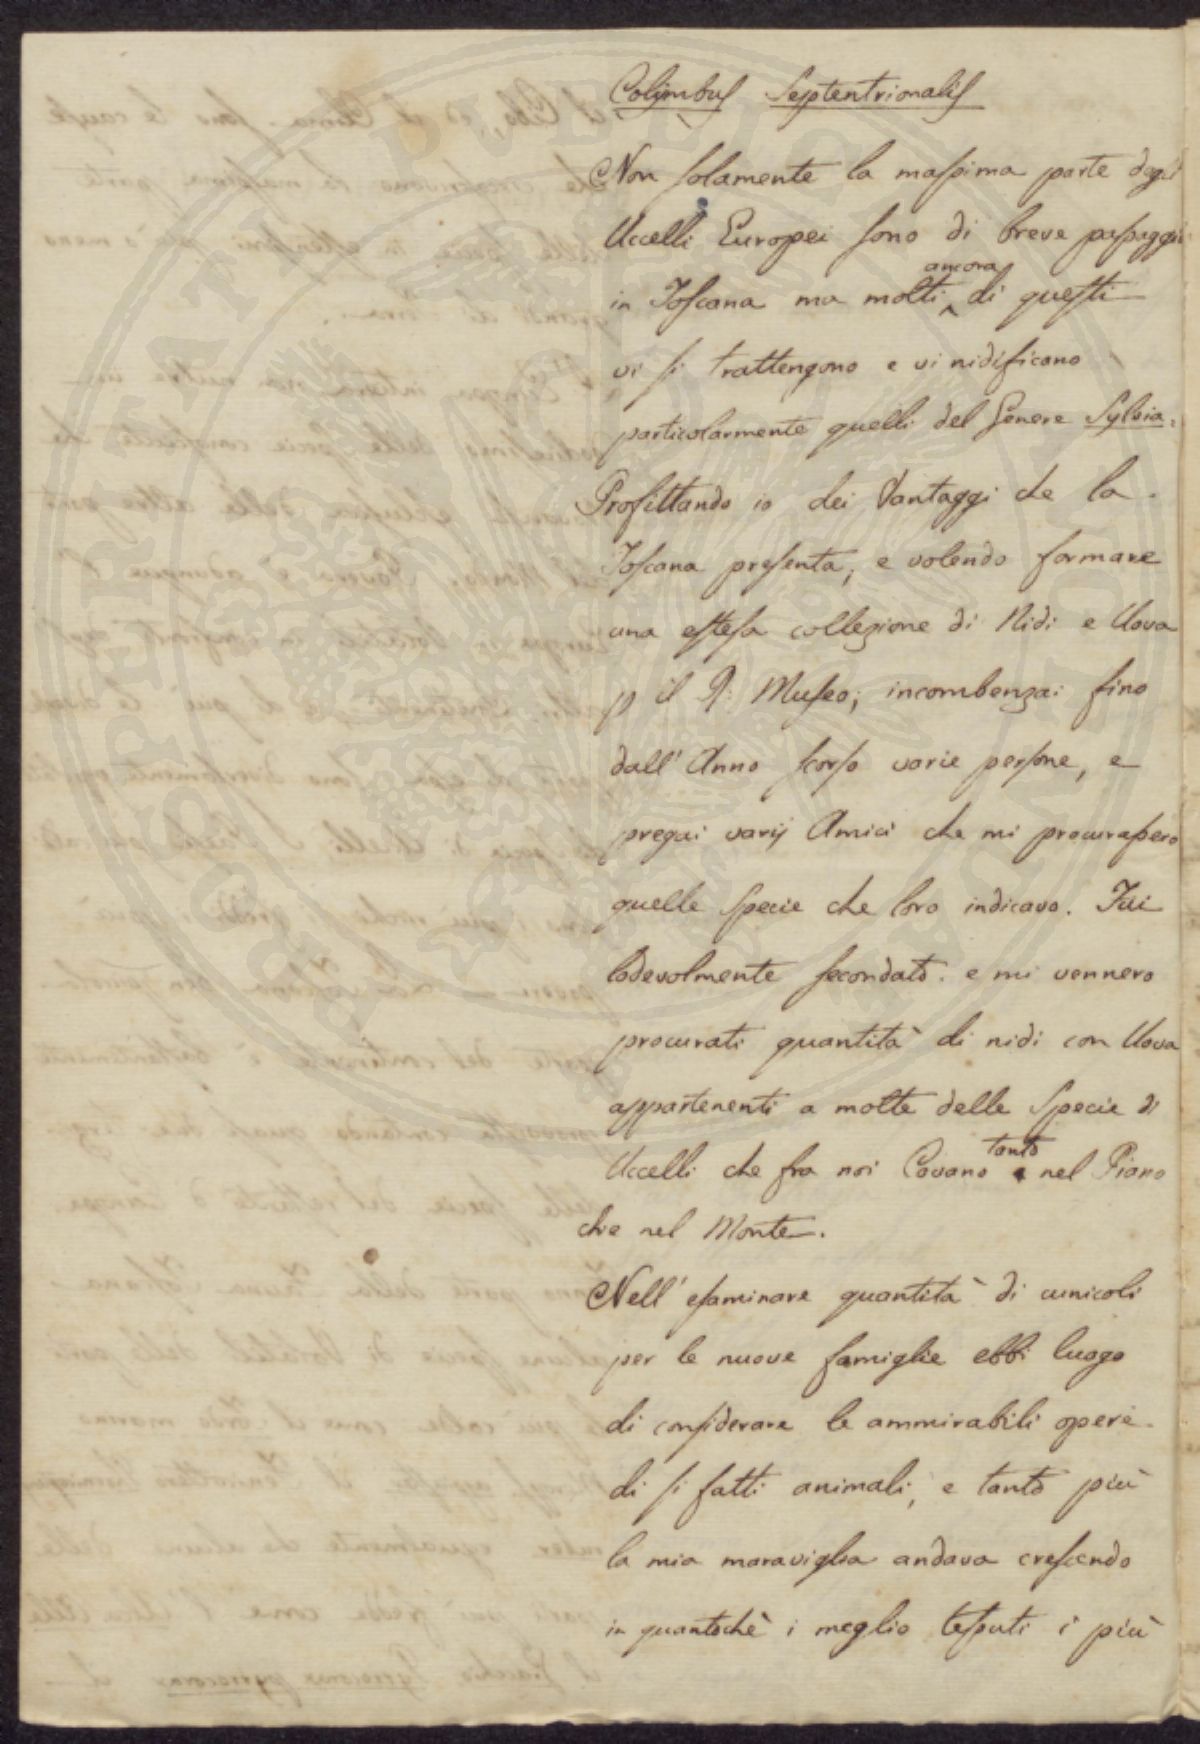 Colymbus Septentrionalis
Non solamente la massima parte degli
Uccelli Europei sono di breve passaggio
in Toscana ma molti ancora di questi
vi si trattengono e vi nidificano
particolarmente quelli del Genere Sylvia.
Profittando io dei Vantaggi che la
Toscana presenta, e volendo formare
una estesa collezione di Nidi e Uova
p il R: Museo; incombenzai fino
dall' Anno scorso varie persone, e
pregai varij Amici che mi procurassero
quelle Specie che loro indicavo. Fui
lodevolmente secondato. e mi vennero
procurati quantità di nidi con Uova
appartenenti a molte delle Specie di
Uccelli che fra noi Covano tanto nel Piano
che nel Monte.
Nell' esaminare quantità di cunicoli
per le nuove famiglie ebbi luogo
di considerare le ammirabili opere
di si fatti animali, e tanto più
la mia maraviglia andava crescendo
in quantochè i meglio tessuti i più
PROSPERITATI PUBLICAE AUGENDAE